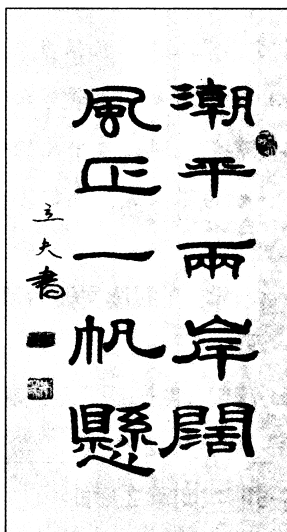 潮平兩岸闊
風正一帆懸
立夫書